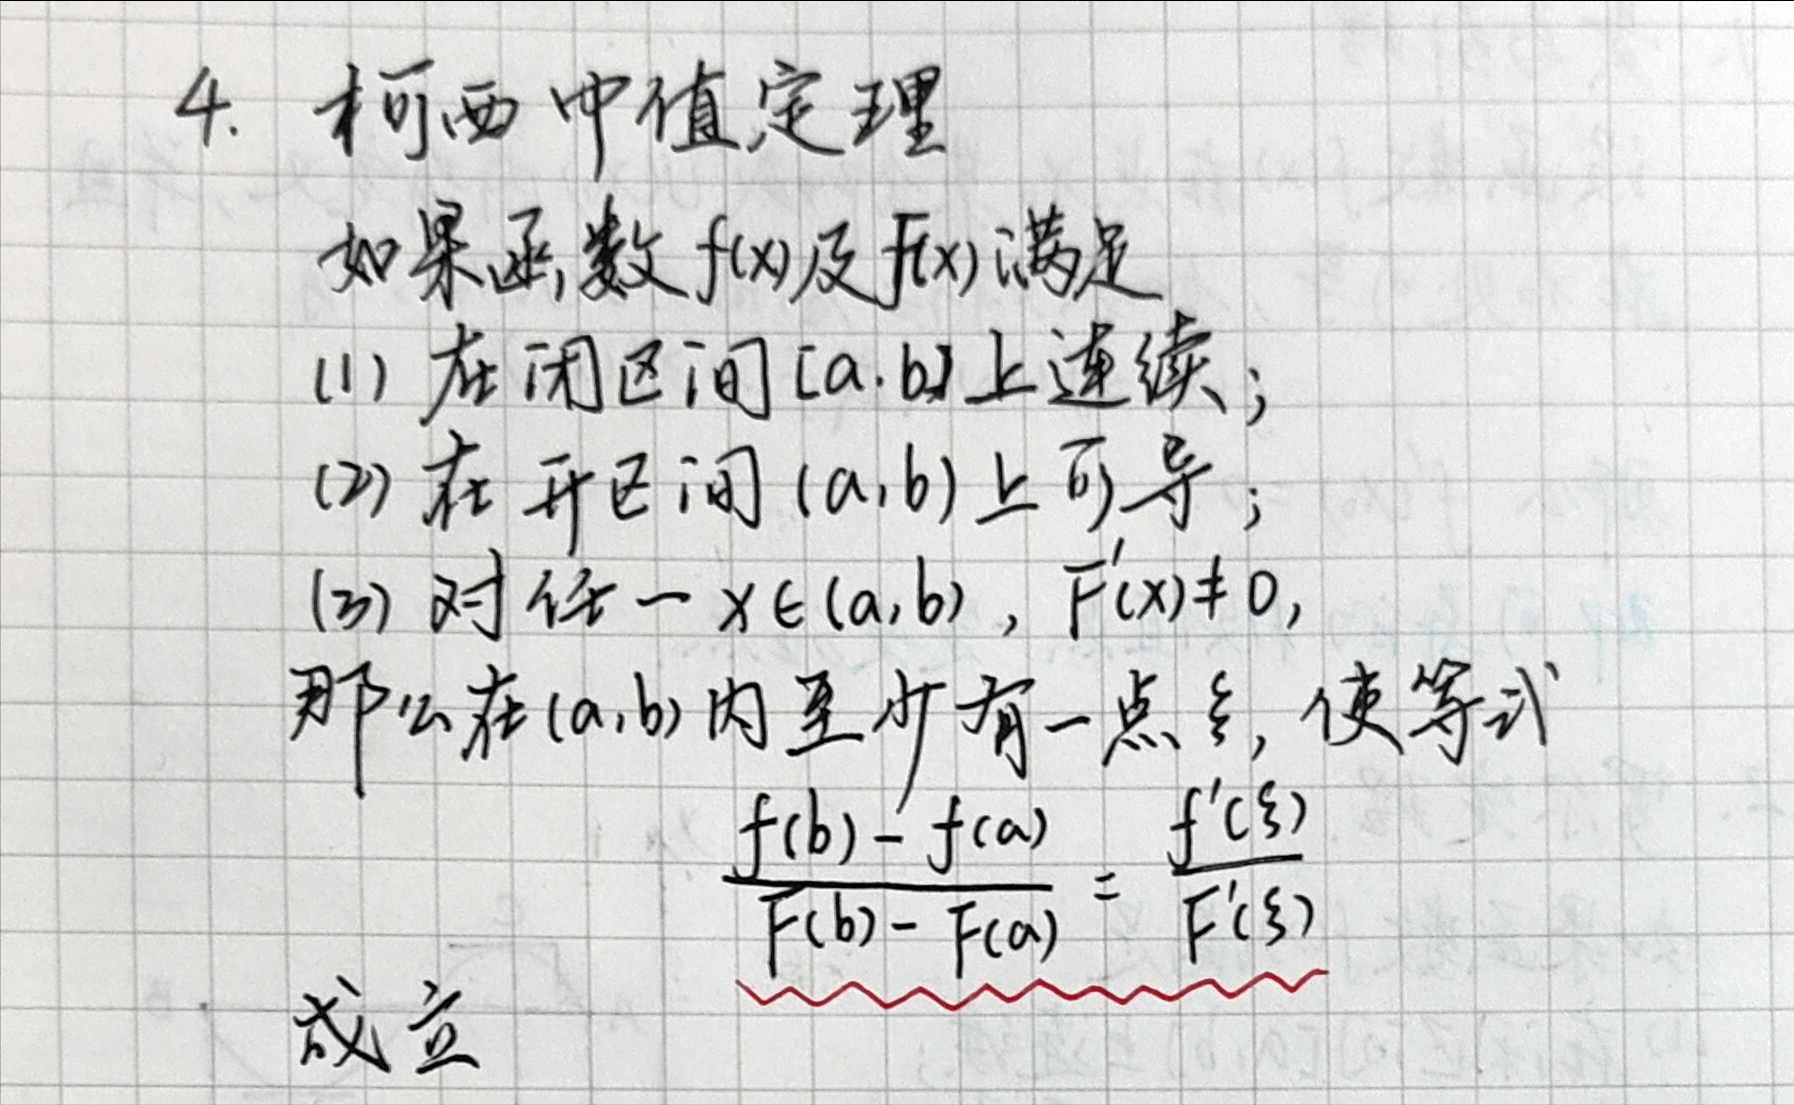 4. 柯西中值定理
如果函数f(x)及F(x)满足
(1) 在闭区间[a.b]上连续;
(2) 在开区间(a,b)上可导;
(3) 对任一x∈(a,b), F'(x)≠0,
那么在(a,b)内至少有一点ξ, 使等式
\frac{f(b)-f(a)}{F(b)-F(a)} = \frac{f'(ξ)}{F'(ξ)}
成立